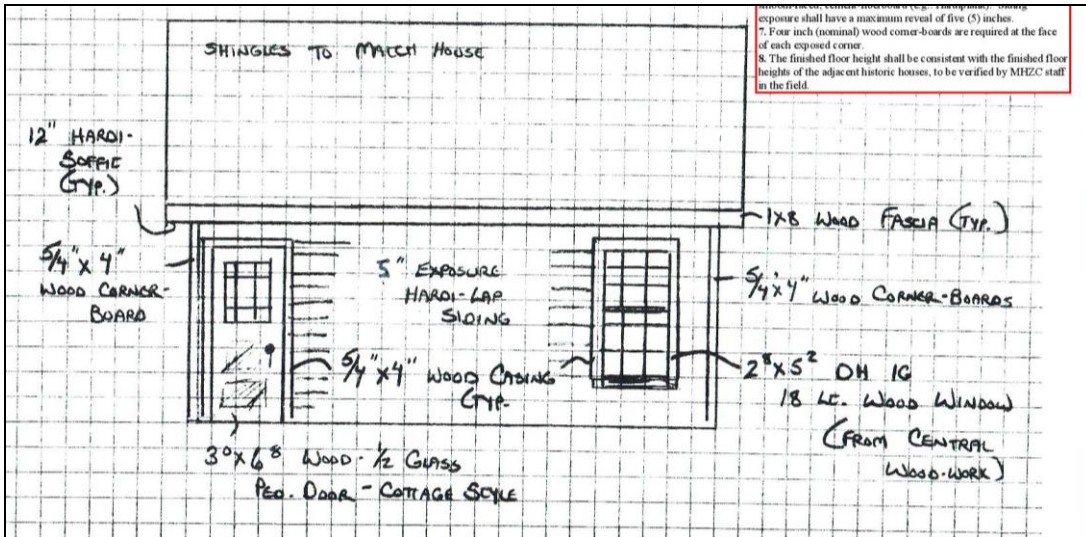 exposure shall have a maximum reveal of five (5) inches.
7. Four inch (nominal) wood corner-boards are required at the face
of each exposed corner.
8. The finished floor height shall be consistent with the finished floor
heights of the adjacent historic houses, to be verified by MHZC staff
in the field.
SHINGLES TO MATCH HOUSE
12" HARDI-
SOFFIT
(TYP.)
1x8 WOOD FASCIA (TYP.)
5/4" x 4"
WOOD CORNER-
BOARD
5" EXPOSURE
HARDI-LAP
SIDING
5/4"x4" WOOD CORNER-BOARDS
5/4"x4" WOOD CASING
(TYP.
2⁸x5² DH IG
18 LT. WOOD WINDOW
(FROM CENTRAL
WOOD-WORK)
3⁰x6⁸ WOOD - 1/2 GLASS
PED. DOOR - COTTAGE STYLE